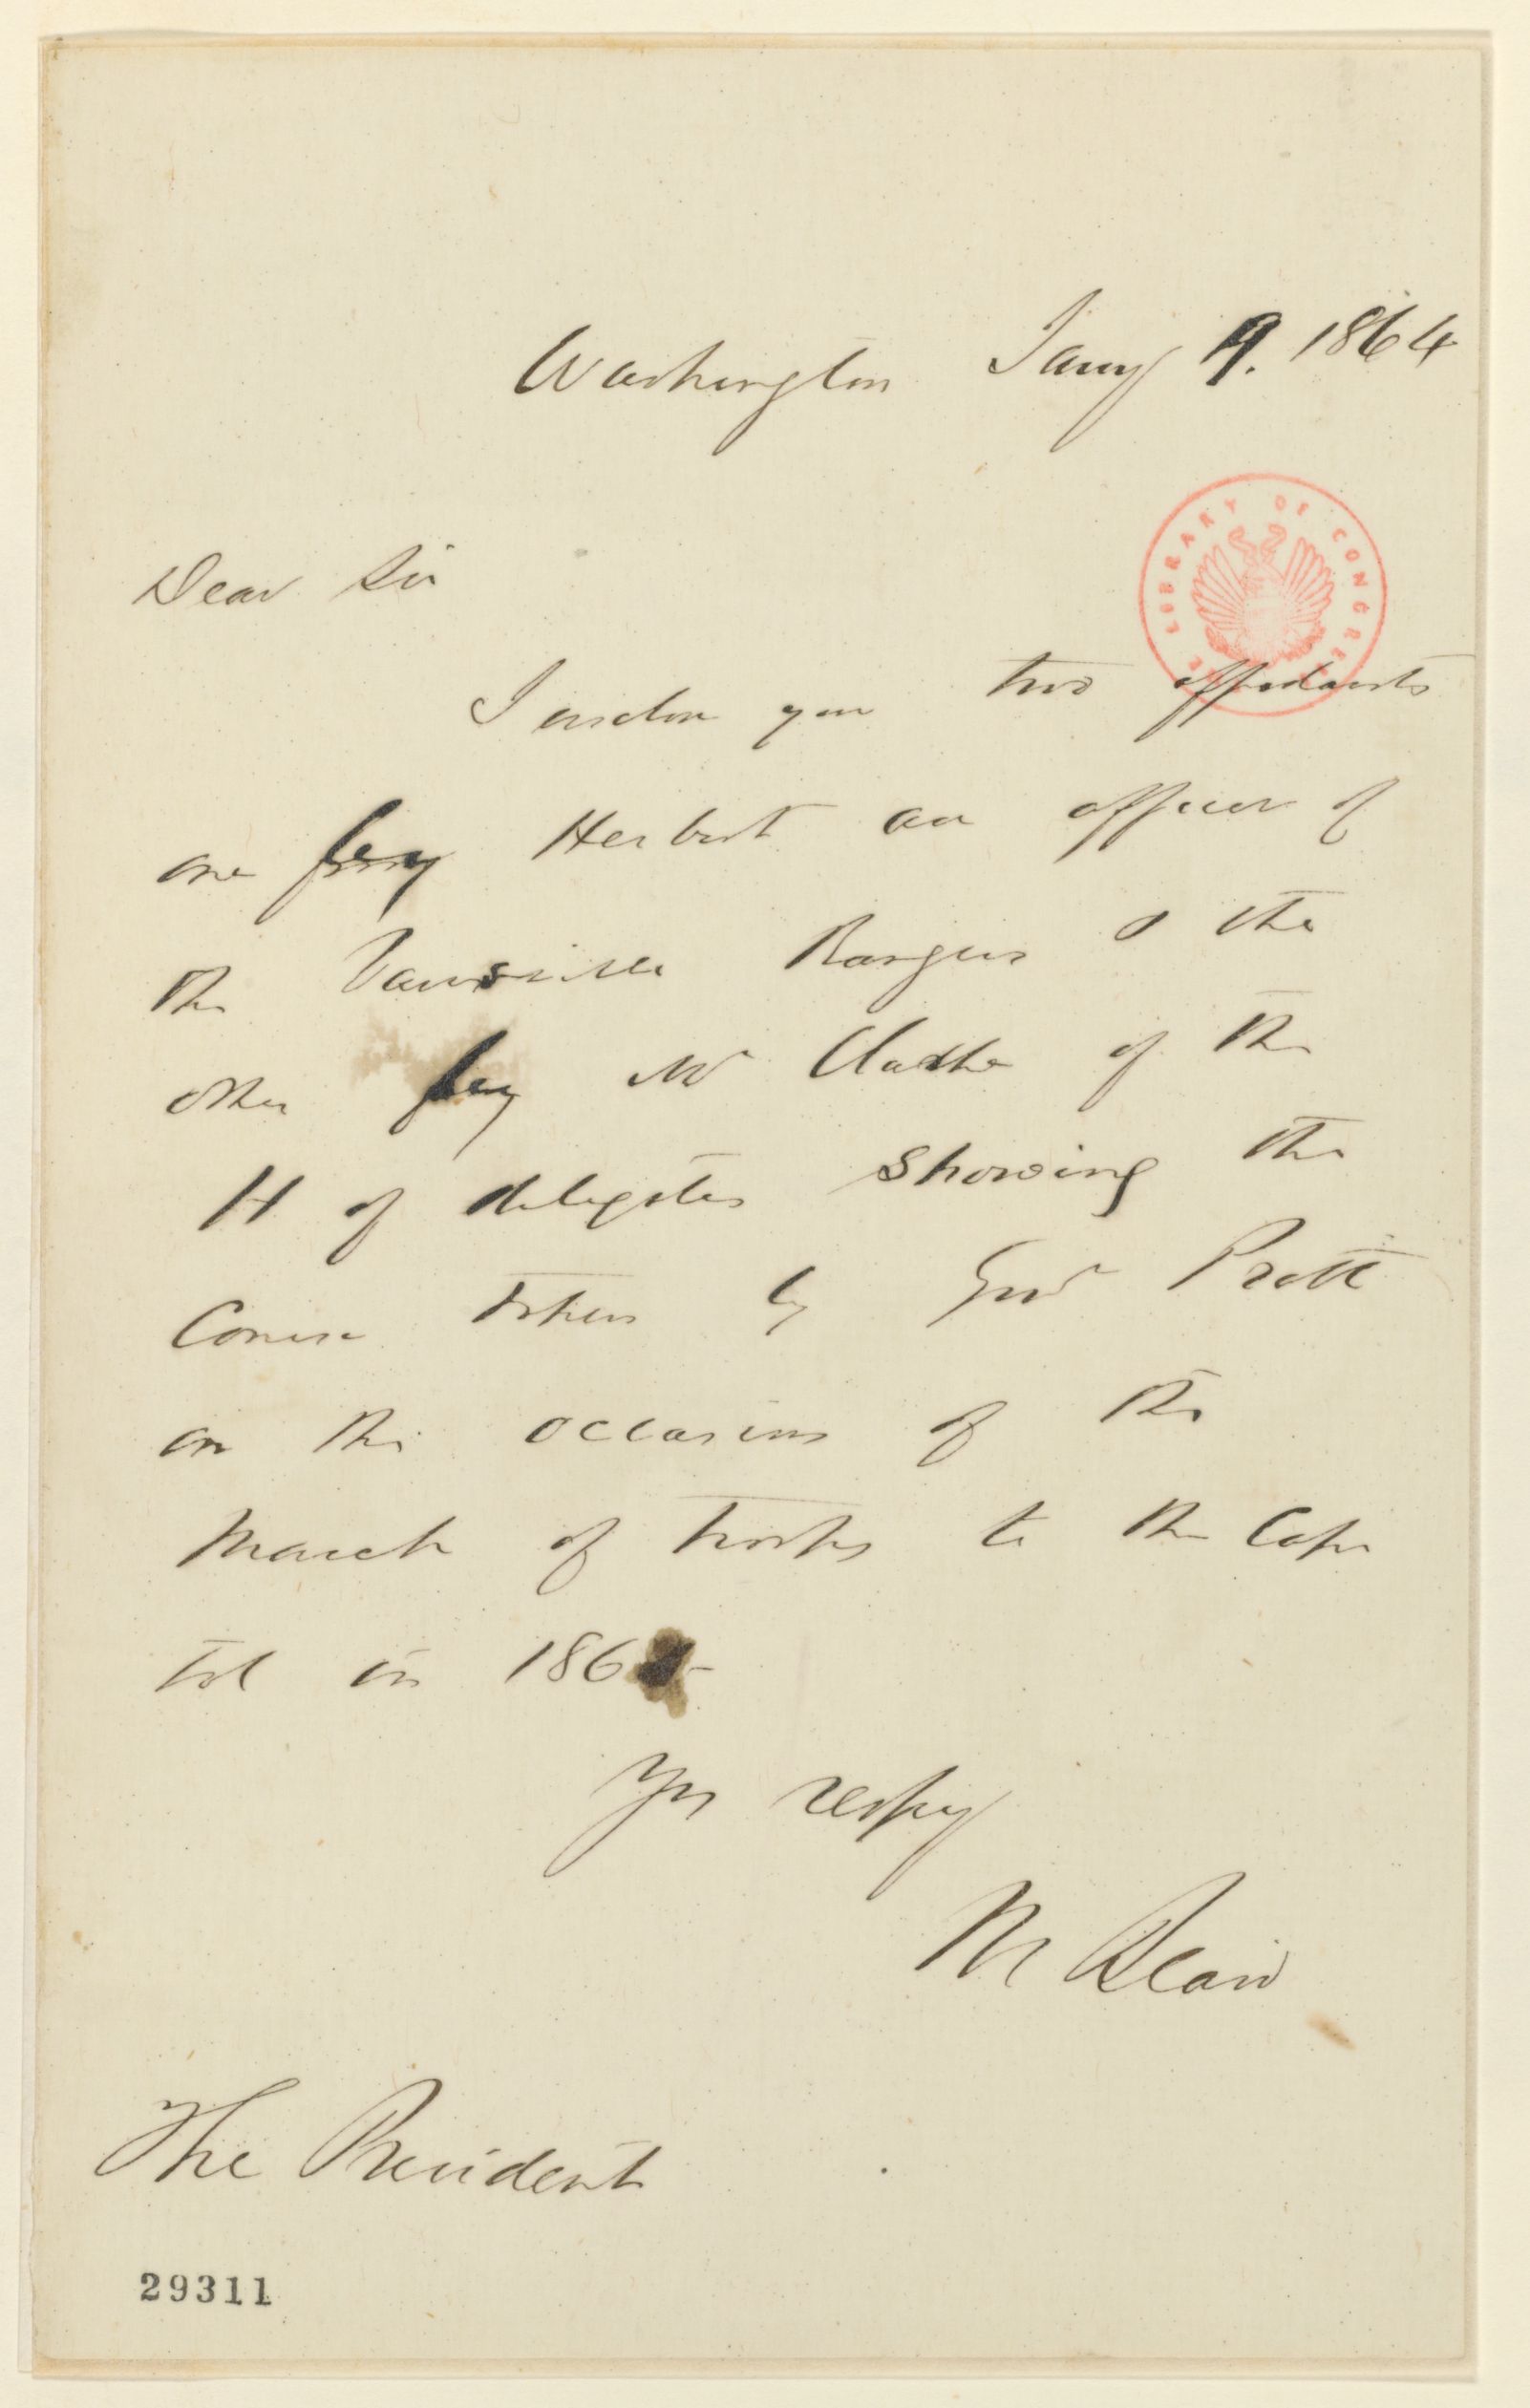 Washington Jany 9. 1864
LIBRARY OF CONGRESS
Dear Sir
I enclose you two affidavits
one by Herbert an officer of
the Vansville Rangers & the
other by Mr Clarke of the
H of delegates showing the
Course taken by Govr Pratt
on the occasion of the
March of troops to the Capi
tol in 1861
Yrs respy
M Blair
The President
29311